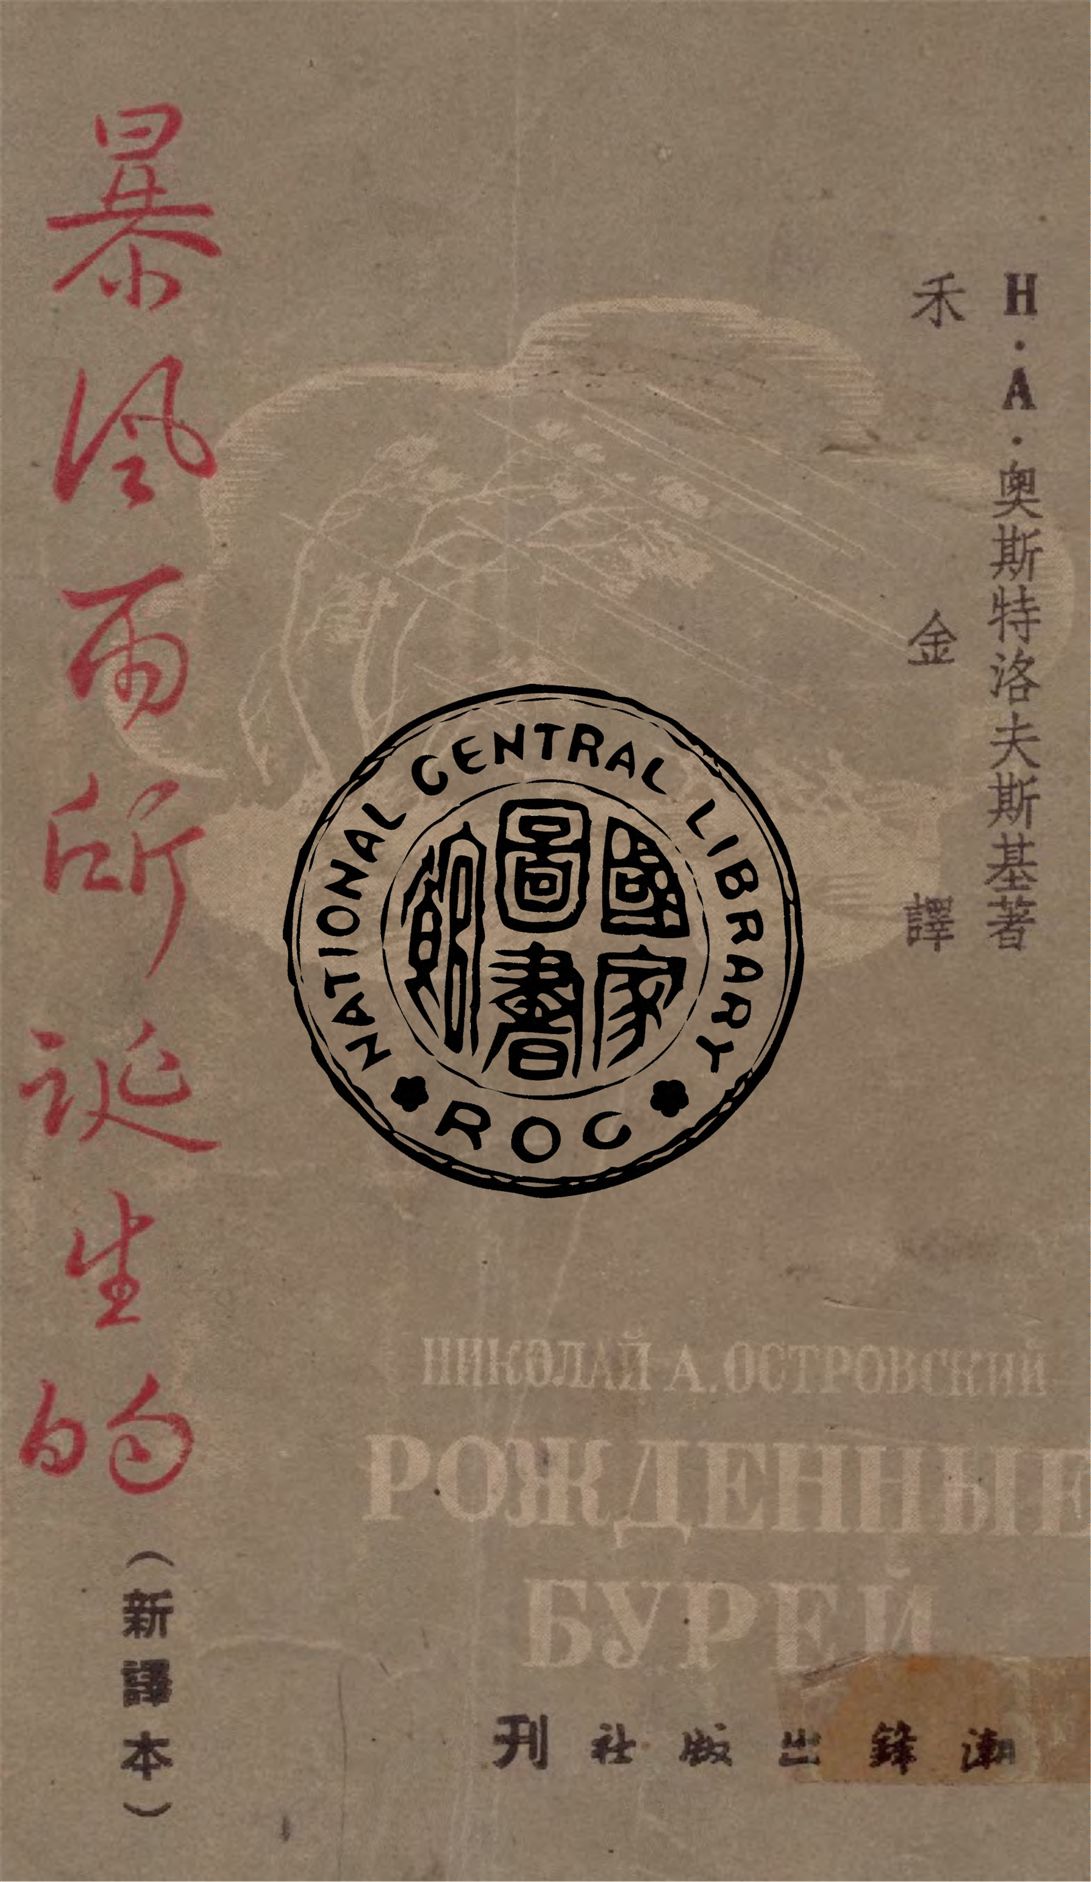 暴風雨所誕生的
（新譯本）
H·A·奧斯特洛夫斯基著
禾金譯
NATIONAL CENTRAL LIBRARY
ROC
國家圖書館
НИКОЛАЙ А. ОСТРОВСКИЙ
РОЖДЕННЫЕ
БУРЕЙ
潮鋒出版社刊